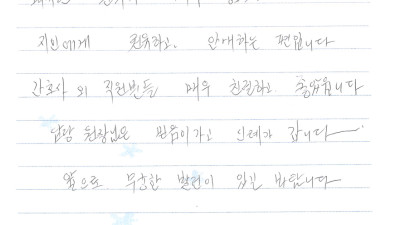 지인에게 권유하고, 안내하는 편입니다
간호사 외 직원분들 매우 친절하고 좋았습니다
담당 원장님은 믿음이가고 신뢰가 갑니다
앞으로 무궁한 발전이 있길 바랍니다